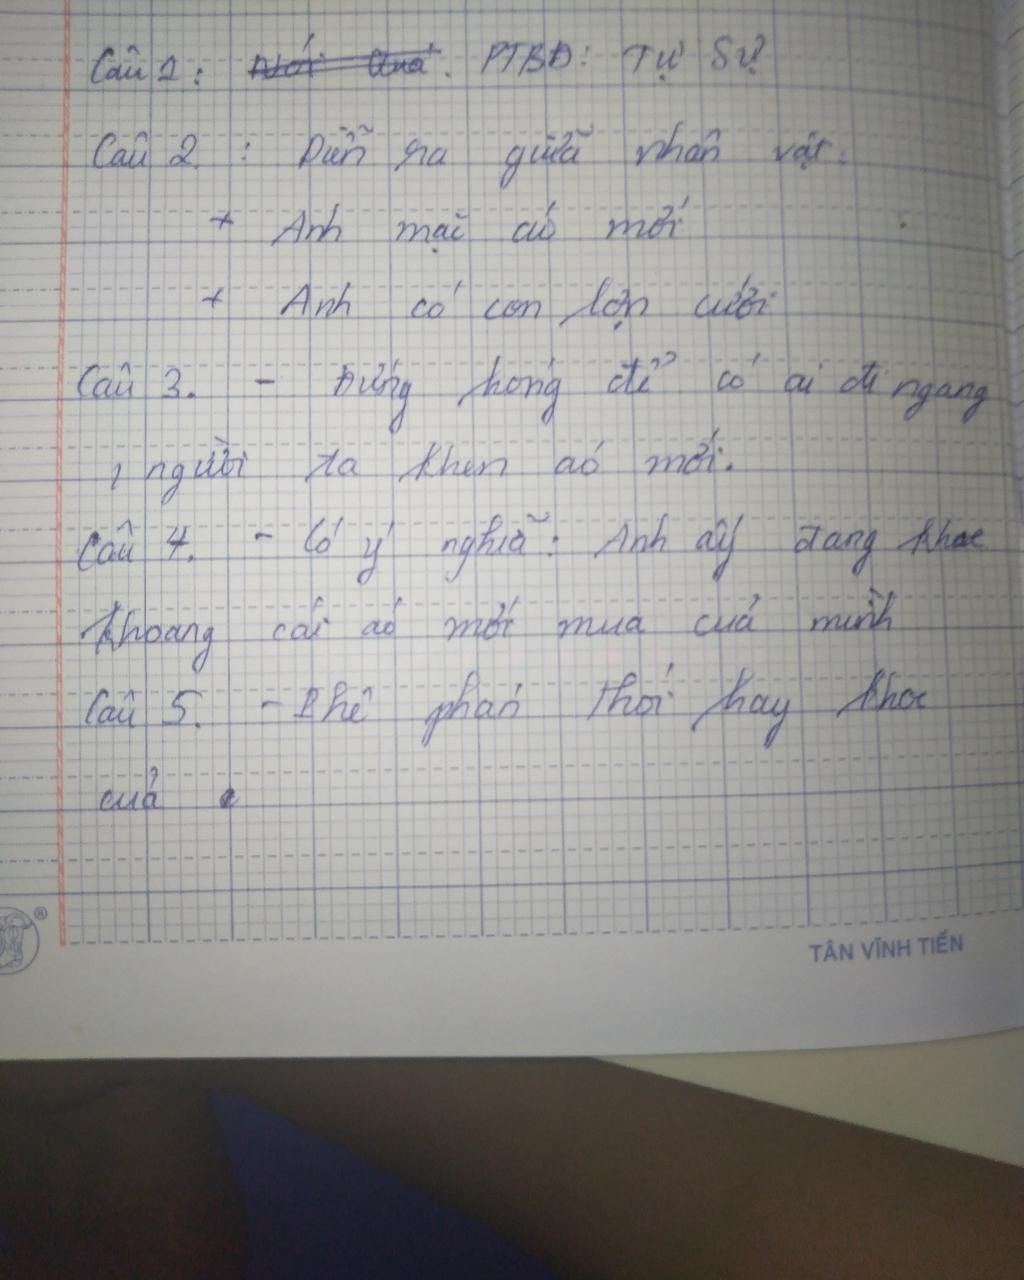 Câu 1: Nói Quá. PTBĐ: Tự Sự
Câu 2 : Diễn ra giữa nhân vật:
+ Anh mặc áo mới
+ Anh có con lợn cưới
Câu 3. - Đứng hóng để có ai đi ngang
, người ta khen áo mới.
Câu 4. - Có ý nghĩa: Anh ấy đang khoe
khoang cái áo mới mua của mình
Câu 5. - Phê phán thói hay khoe
của
®
TÂN VĨNH TIẾN